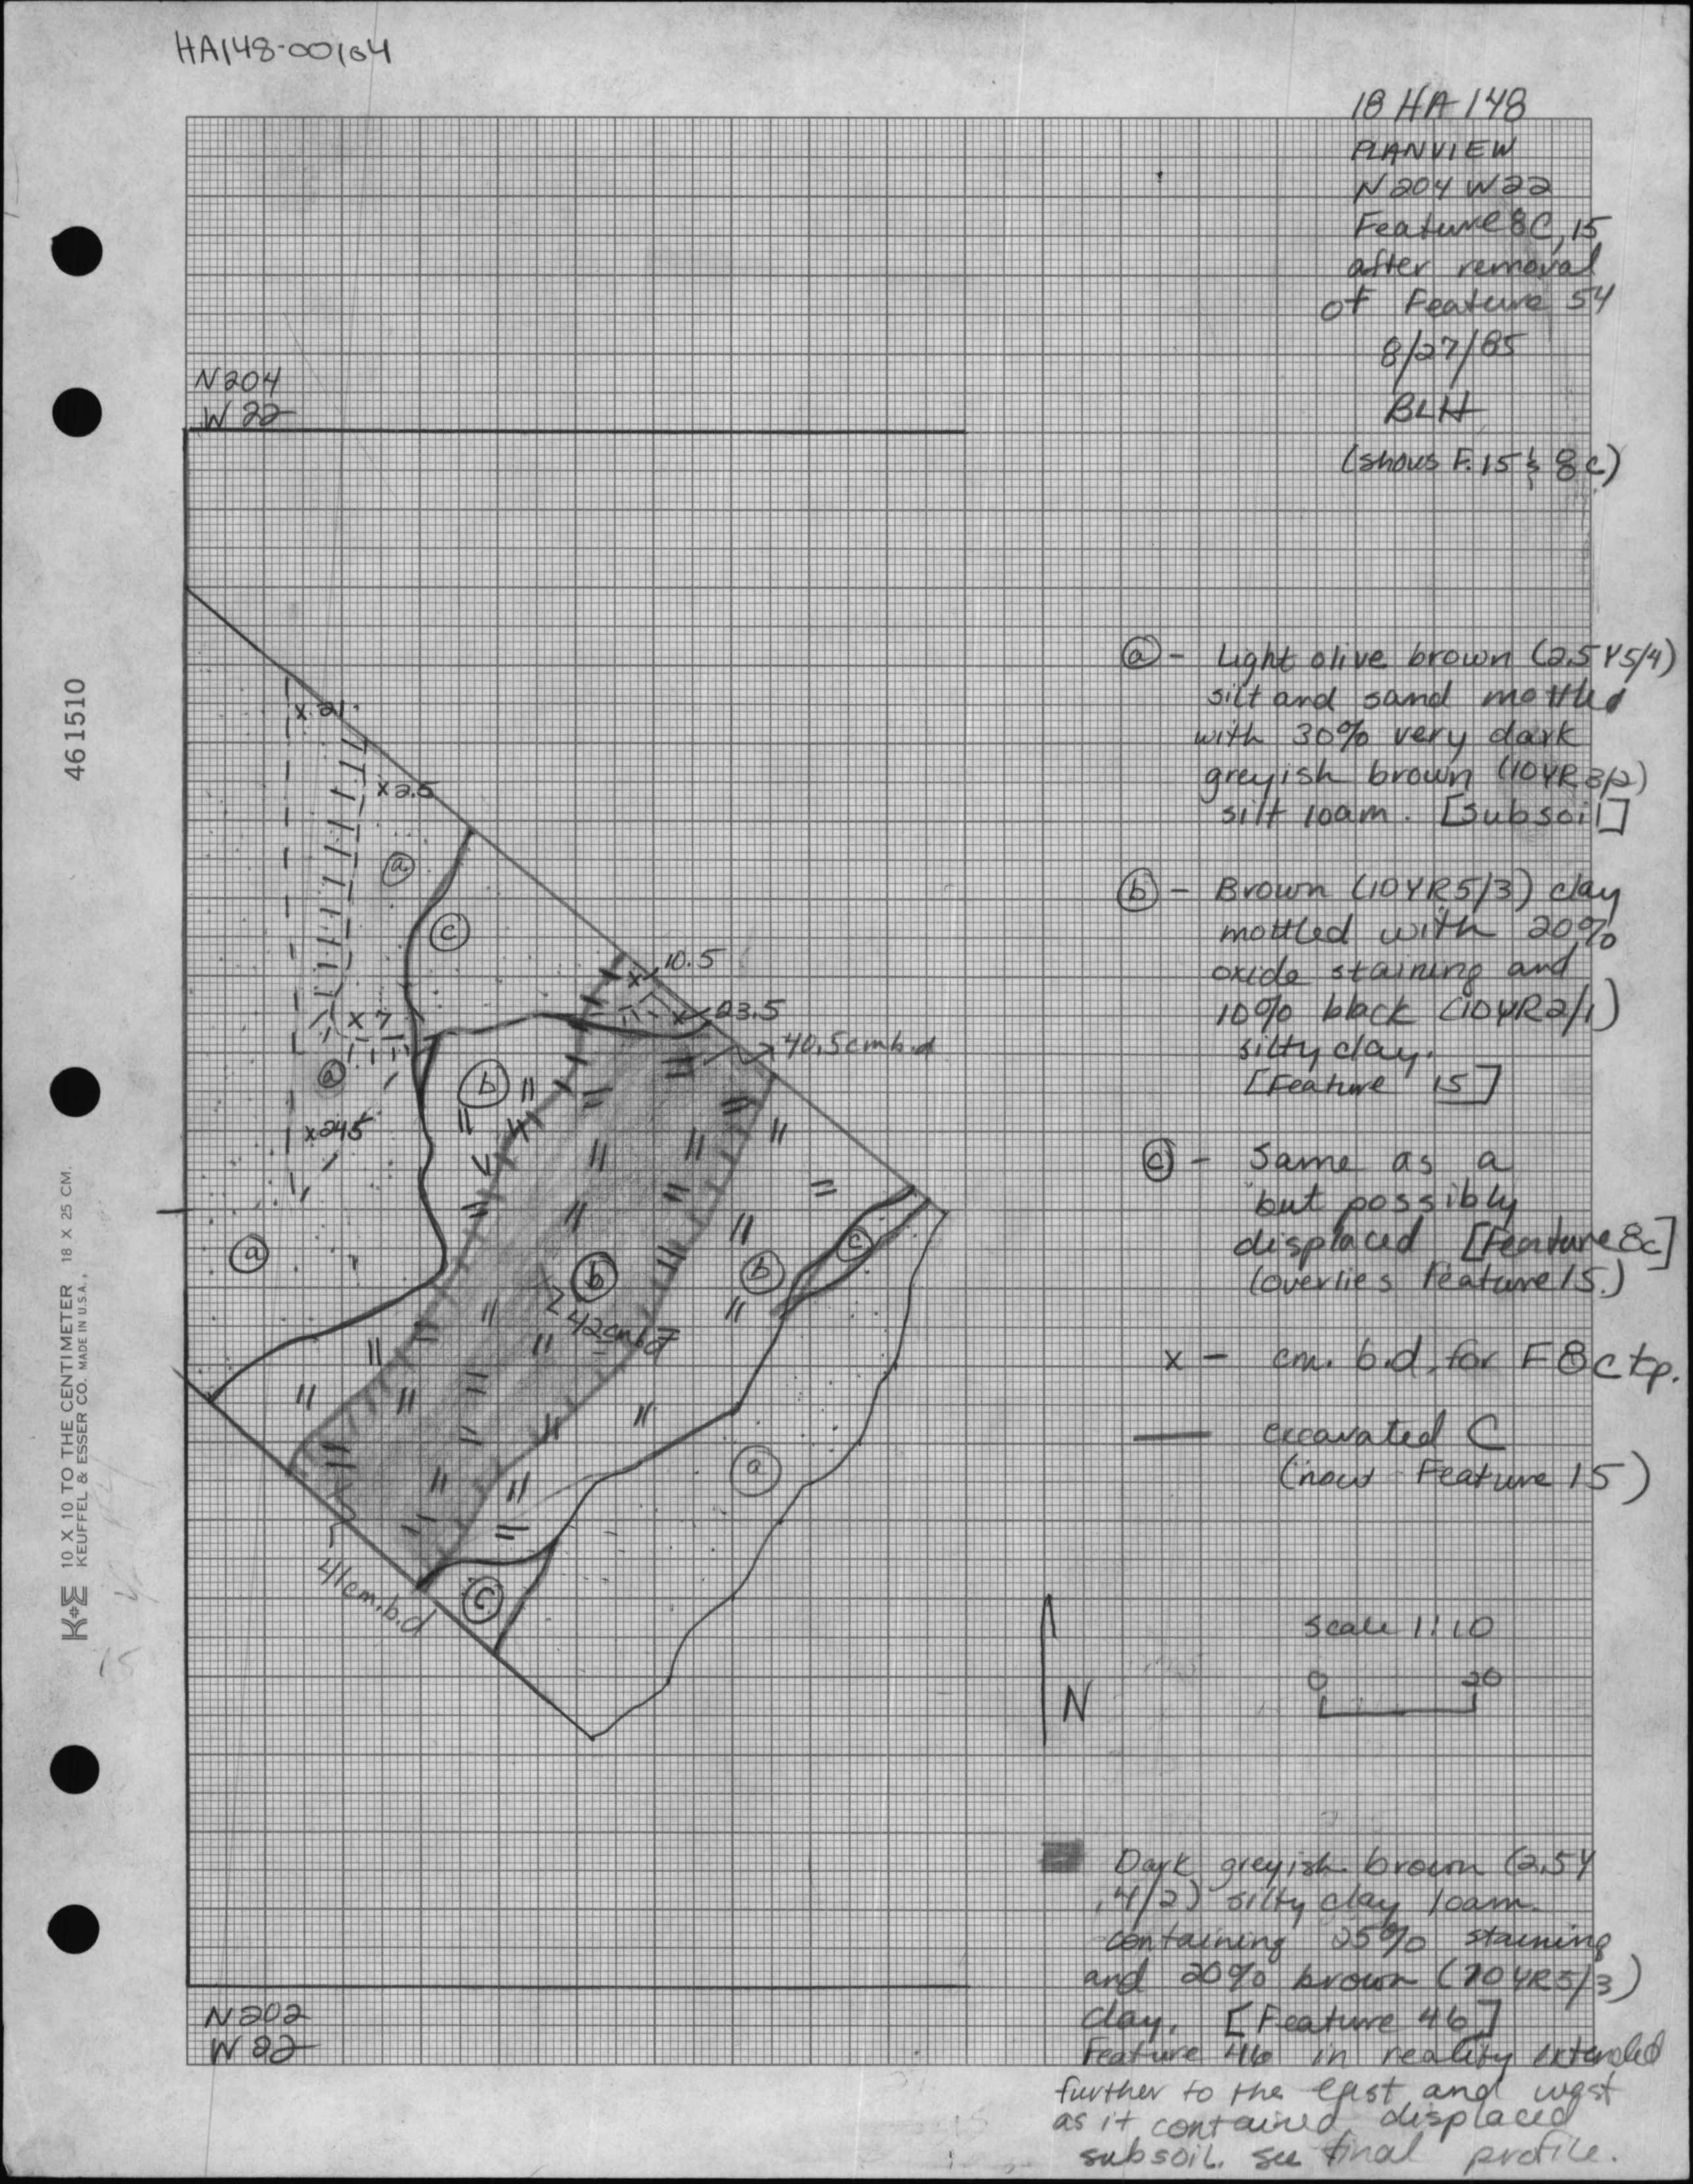 HA148-00104
18 HA 148
PLANVIEW
N204 W22
Feature 8C, 15
after removal
of Feature 54
8/27/85
BLH
(shows F. 15 & 8c)
N204
W 22
a - Light olive brown (2.5Y5/4)
silt and sand mottled
with 30% very dark
greyish brown (10YR3/2)
silt loam. [Subsoil]
b - Brown (10YR5/3) clay
mottled with 20%
oxide staining and
10% black (10YR2/1)
silty clay.
[Feature 15]
c - Same as a
but possibly
displaced [Feature 8c]
(overlies Feature 15.)
x - cm. b.d. for F8c tp.
excavated C
(now Feature 15)
x 21
x 2.5
a
c
x 10.5
x 23.5
40.5cm b.d
x 7
a
b
x 24.5
a
b
b
c
42cm b.d
a
41cm.b.d
c
N
Scale 1:10
0 20
Dark greyish brown (2.5Y
4/2) silty clay loam
containing 25% staining
and 20% brown (10YR5/3)
clay. [Feature 46]
Feature 46 in reality extended
further to the east and west
as it contained displaced
subsoil. see final profile.
N202
W 22
461510
K+E 10 X 10 TO THE CENTIMETER 18 X 25 CM.
KEUFFEL & ESSER CO. MADE IN U.S.A.